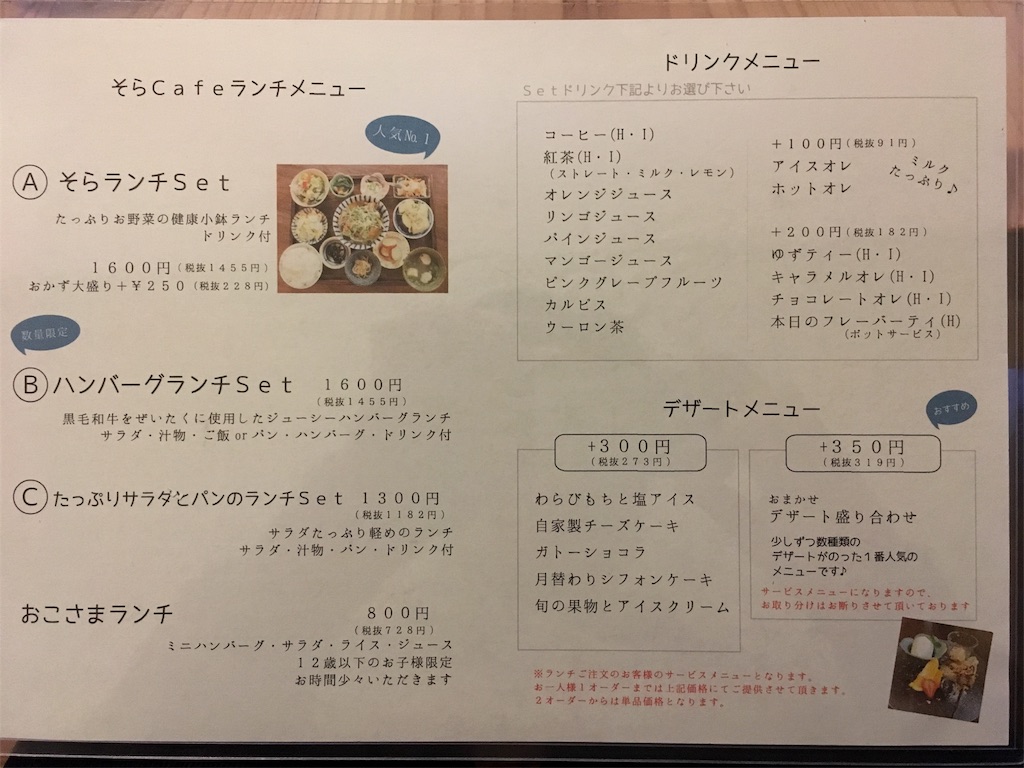 そらCafeランチメニュー
人気№1
Ⓐ そらランチSet
たっぷりお野菜の健康小鉢ランチ
ドリンク付
1600円(税抜1455円)
おかず大盛り+¥250(税抜228円)
数量限定
Ⓑ ハンバーグランチSet 1600円
(税抜1455円)
黒毛和牛をぜいたくに使用したジューシーハンバーグランチ
サラダ・汁物・ご飯orパン・ハンバーグ・ドリンク付
Ⓒ たっぷりサラダとパンのランチSet 1300円
(税抜1182円)
サラダたっぷり軽めのランチ
サラダ・汁物・パン・ドリンク付
おこさまランチ 800円
(税抜728円)
ミニハンバーグ・サラダ・ライス・ジュース
12歳以下のお子様限定
お時間少々いただきます
ドリンクメニュー
Setドリンク下記よりお選び下さい
コーヒー(H・I)
紅茶(H・I)
(ストレート・ミルク・レモン)
オレンジジュース
リンゴジュース
パインジュース
マンゴージュース
ピンクグレープフルーツ
カルピス
ウーロン茶
+100円(税抜91円)
アイスオレ
ホットオレ
ミルク
たっぷり♪
+200円(税抜182円)
ゆずティー(H・I)
キャラメルオレ(H・I)
チョコレートオレ(H・I)
本日のフレーバーティ(H)
(ポットサービス)
デザートメニュー
おすすめ
+300円
(税抜273円)
わらびもちと塩アイス
自家製チーズケーキ
ガトーショコラ
月替わりシフォンケーキ
旬の果物とアイスクリーム
+350円
(税抜319円)
おまかせ
デザート盛り合わせ
少しずつ数種類の
デザートがのった1番人気の
メニューです♪
サービスメニューになりますので、
お取り分けはお断りさせて頂いております
※ランチご注文のお客様のサービスメニューとなります。
お一人様1オーダーまでは上記価格にてご提供させて頂きます。
2オーダーからは単品価格となります。